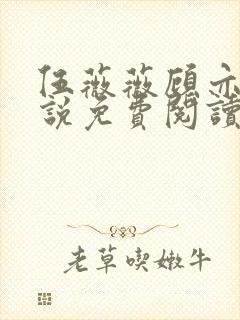 伍薇薇顾亦
說免費閱讀
老草喫嫩牛